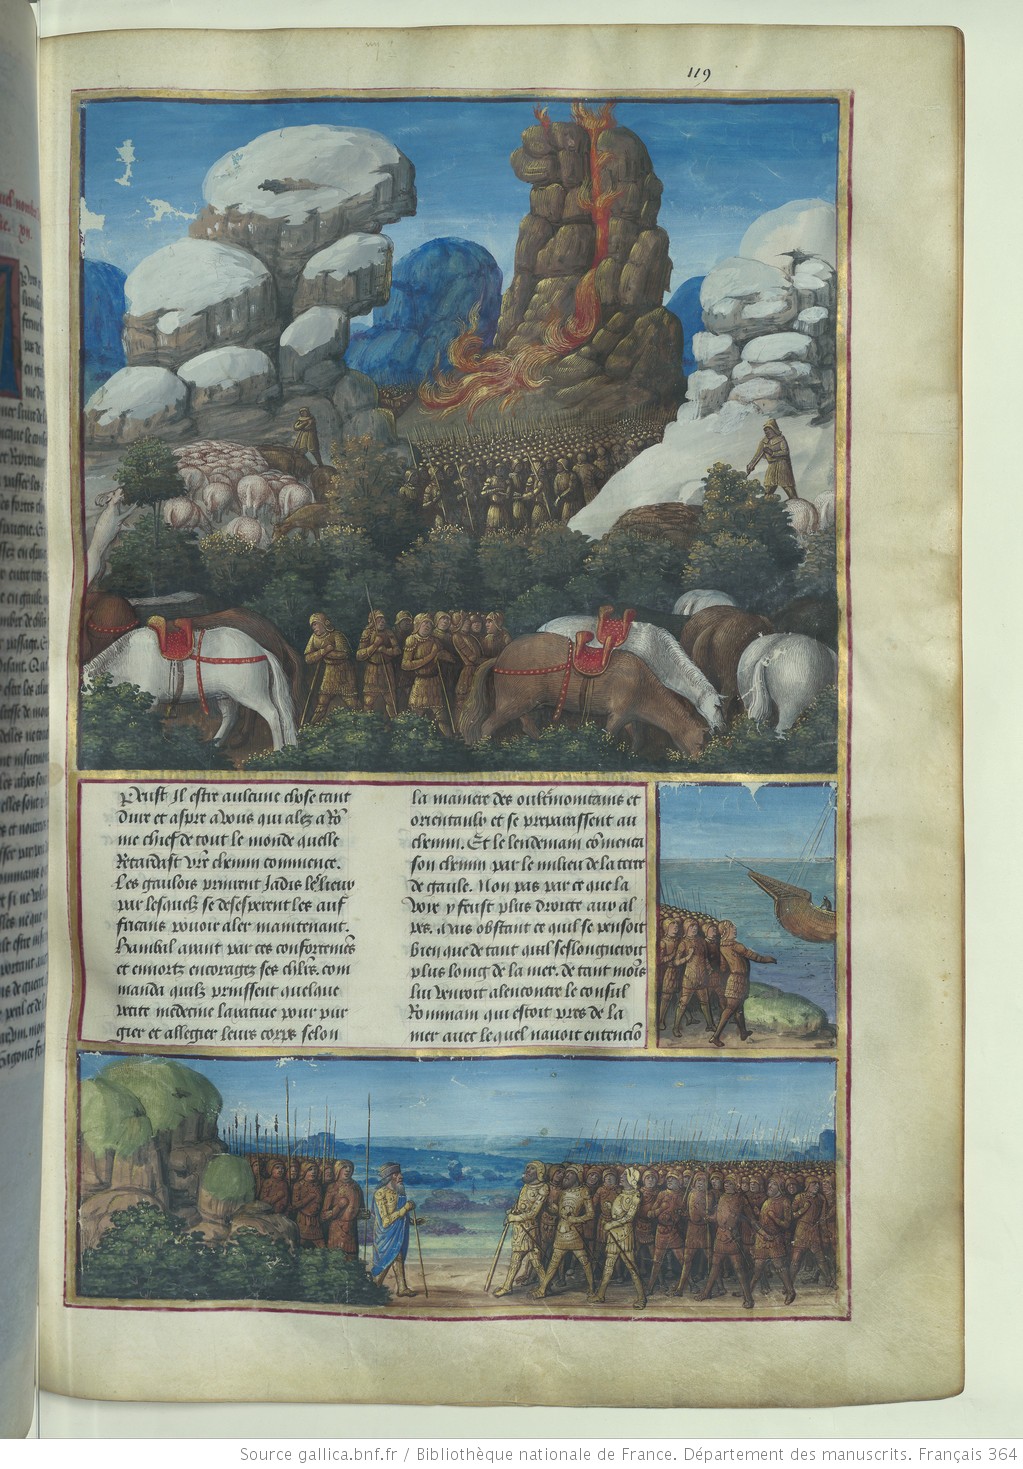 119
Peust Il estre aulcune chose tant
dure et aspre a vous qui alez a Ro
me chief de tout le monde quelle
Retardast vre chemin commence.
Les gaulois prinrent Jadis le lieux
par lesquelz se desesperent les auf
fricans pouoir aler maintenant.
Hanibal aiant par ces confortemes
et enhortz encoragez ses chlrs. com
manda quilz prinssent quelque
petite medecine laxatiue pour pur
gier et allegier leurs corps selon
la maniere des oultremontains et
orientaulx et se preparassent au
chemin. Et le lendemain comenca
son chemin par le milieu de la terre
de gaule. Non pas par ce que la
voye y feust plus droicte aux al
pes. Mais obstant ce quil pensoit
bien que de tant quil seslongneroit
plus loing de la mer. de tant mois
lui venroit alencontre le consul
Rommain qui estoit pres de la
mer auec lequel nauoit entencio
Source gallica.bnf.fr / Bibliothèque nationale de France. Département des manuscrits. Français 364